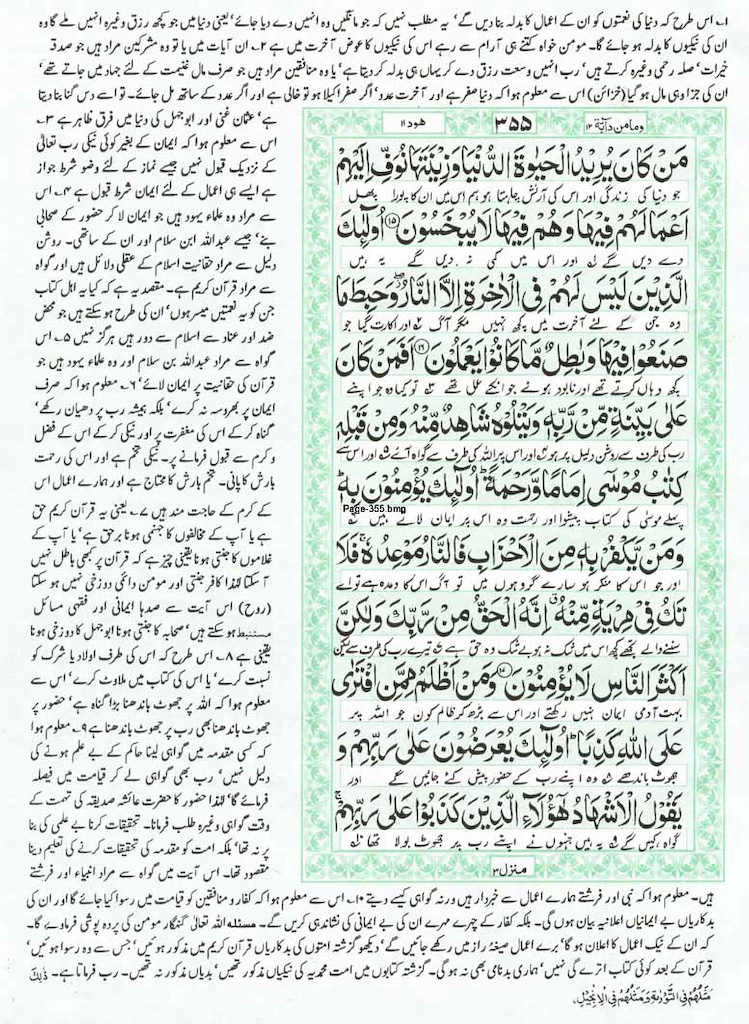 ۱۔ اس طرح کہ دنیا کی نعمتوں کو ان کے اعمال کا بدلہ بنا دیں گے' یہ مطلب نہیں کہ جو مانگیں وہ انہیں دے دیا جائے' یعنی دنیا میں جو کچھ رزق وغیرہ انہیں ملے گا وہ
ان کی نیکیوں کا بدلہ ہو جائے گا۔ مومن خواہ کتنے ہی آرام سے رہے اس کی نیکیوں کا عوض آخرت میں ہے ۲۔ ان آیات میں یا تو وہ مشرکین مراد ہیں جو صدقہ
خیرات' صلہ رحمی وغیرہ کرتے ہیں' رب انہیں وسعت رزق دے کر یہاں ہی بدلہ کر دیتا ہے' یا وہ منافقین مراد ہیں جو صرف مال غنیمت کے لئے جہاد میں جاتے تھے'
ان کی جزا وہی مال ہو گیا (خزائن) اس سے معلوم ہوا کہ دنیا صفر ہے اور آخرت عدد' اگر صفر اکیلا ہو تو خالی ہے اور اگر عدد کے ساتھ مل جائے۔ تو اسے دس گنا بنا دیتا
ومامن دابة ۱۲
۳۵۵
ھود ۱۱
مَنْ كَانَ يُرِيْدُ الْحَيٰوةَ الدُّنْيَا وَزِيْنَتَهَا نُوَفِّ اِلَيْهِمْ
جو دنیا کی زندگی اور اس کی آرائش چاہتا ہو ہم اس میں ان کا پورا پھل
اَعْمَالَهُمْ فِيْهَا وَهُمْ فِيْهَا لَا يُبْخَسُوْنَ ۱۵ اُولٰٓئِكَ
دے دیں گے اور اس میں کمی نہ دیں گے یہ ہیں
الَّذِيْنَ لَيْسَ لَهُمْ فِى الْاٰخِرَةِ اِلَّا النَّارُ وَحَبِطَ مَا
وہ جن کے لئے آخرت میں کچھ نہیں مگر آگ اور اکارت گیا جو
صَنَعُوْا فِيْهَا وَبٰطِلٌ مَّا كَانُوْا يَعْمَلُوْنَ ۱۶ اَفَمَنْ كَانَ
کچھ وہاں کرتے تھے اور نابود ہونے جو انکے عمل تھے تو کیا وہ جو اپنے
عَلٰى بَيِّنَةٍ مِّنْ رَّبِّهٖ وَيَتْلُوْهُ شَاهِدٌ مِّنْهُ وَمِنْ قَبْلِهٖ
رب کی طرف سے روشن دلیل پر ہو اور اس پر اللہ کی طرف سے گواہ آئے اور اس سے
كِتٰبُ مُوْسٰٓى اِمَامًا وَّرَحْمَةً اُولٰٓئِكَ يُؤْمِنُوْنَ بِهٖ
Page-355.bmp
پہلے موسٰی کی کتاب پیشوا اور رحمت وہ اس پر ایمان لاتے ہیں
وَمَنْ يَّكْفُرْ بِهٖ مِنَ الْاَحْزَابِ فَالنَّارُ مَوْعِدُهٗ فَلَا
اور جو اس کا منکر ہو سارے گروہوں میں تو آگ اس کا وعدہ ہے تو اے
تَكُ فِىْ مِرْيَةٍ مِّنْهُ اِنَّهُ الْحَقُّ مِنْ رَّبِّكَ وَلٰكِنَّ
سننے والے تجھے کچھ اس میں شک نہ ہو بے شک وہ حق ہے تیرے رب کی طرف سے لیکن
اَكْثَرَ النَّاسِ لَا يُؤْمِنُوْنَ ۱۷ وَمَنْ اَظْلَمُ مِمَّنِ افْتَرٰى
بہت آدمی ایمان نہیں رکھتے اور اس سے بڑھ کر ظالم کون جو اللہ پر
عَلَى اللّٰهِ كَذِبًا اُولٰٓئِكَ يُعْرَضُوْنَ عَلٰى رَبِّهِمْ وَ
جھوٹ باندھے وہ اپنے رب کے حضور پیش کئے جائیں گے اور
يَقُوْلُ الْاَشْهَادُ هٰٓؤُلَآءِ الَّذِيْنَ كَذَبُوْا عَلٰى رَبِّهِمْ
گواہ کہیں گے یہ ہیں جنہوں نے اپنے رب پر جھوٹ بولا تھا
منزل ۳
ہے' عثمان غنی اور ابوجہل کی دنیا میں فرق ظاہر ہے ۳۔
اس سے معلوم ہوا کہ ایمان کے بغیر کوئی نیکی رب تعالٰی
کے نزدیک قبول نہیں جیسے نماز کے لئے وضو شرط جواز
ہے ایسے ہی اعمال کے لئے ایمان شرط قبول ہے ۴۔ اس
سے مراد وہ علماء یہود ہیں جو ایمان لا کر حضور کے صحابی
بنے' جیسے عبداللہ ابن سلام اور ان کے ساتھی۔ روشن
دلیل سے مراد حقانیت اسلام کے عقلی دلائل ہیں اور گواہ
سے مراد قرآن کریم ہے۔ مقصد یہ ہے کہ کیا یہ اہل کتاب
جن کو یہ نعمتیں میسر ہوں' ان کی طرح ہو سکتے ہیں جو محض
ضد اور عناد سے اسلام سے دور ہیں ہرگز نہیں ۵۔ اس
گواہ سے مراد عبداللہ بن سلام اور وہ علماء یہود ہیں جو
قرآن کی حقانیت پر ایمان لائے' ۶۔ معلوم ہوا کہ صرف
ایمان پر بھروسہ نہ کرے' بلکہ ہمیشہ رب پر دھیان رکھے'
گناہ کر کے اس کی مغفرت پر اور نیکی کر کے اس کے فضل
و کرم سے قبول فرمانے پر۔ نیکی تخم ہے اور اس کی رحمت
بارش کا پانی۔ تخم بارش کا محتاج ہے اور ہمارے اعمال اس
کے کرم کے حاجت مند ہیں ۷۔ یعنی یہ قرآن کریم حق
ہے یا آپ کے مخالفوں کا جہنمی ہونا برحق ہے' یا آپ کے
غلاموں کا جنتی ہونا یقینی چیز ہے کہ قرآن پر کبھی باطل نہیں
آ سکتا لہٰذا کافر جنتی اور مومن دائمی دوزخی نہیں ہو سکتا
(روح) اس آیت سے صدہا ایمانی اور فقہی مسائل
مستنبط ہو سکتے ہیں' صحابہ کا جنتی ہونا ابوجہل کا دوزخی ہونا
یقینی ہے ۸۔ اس طرح کہ اس کی طرف اولاد یا شرک کو
نسبت کرے' یا اس کی کتاب میں ملاوٹ کرے' اس سے
معلوم ہوا کہ اللہ پر جھوٹ باندھنا بڑا گناہ ہے' حضور پر
جھوٹ باندھنا بھی رب پر جھوٹ باندھنا ہے ۹۔ معلوم ہوا
کہ کسی مقدمہ میں گواہی لینا حاکم کے بے علم ہونے کی
دلیل نہیں' رب بھی گواہی لے کر قیامت میں فیصلہ
فرمائے گا' لہٰذا حضور کا حضرت عائشہ صدیقہ کی تہمت کے
وقت گواہی وغیرہ طلب فرمانا۔ تحقیقات کرنا بے علمی کی بنا
پر نہ تھا' بلکہ امت کو مقدمہ کی تحقیقات کرنے کی تعلیم دینا
مقصود تھا۔ اس آیت میں گواہ سے مراد انبیاء اور فرشتے
ہیں۔ معلوم ہوا کہ نبی اور فرشتے ہمارے اعمال سے خبردار ہیں ورنہ گواہی کیسے دیتے ۱۰۔ اس سے معلوم ہوا کہ کفار و منافقین کو قیامت میں رسوا کیا جائے گا اور ان کی
بدکاریاں بے ایمانیاں اعلانیہ بیان ہوں گی۔ بلکہ کفار کے چہرے مہرے ان کی بے ایمانی کی نشاندہی کریں گے۔ مسئلہ اللہ تعالٰی گنہگار مومن کی پردہ پوشی فرماوے گا۔
کہ ان کے نیک اعمال کا اعلان ہو گا' برے اعمال صیغۂ راز میں رکھے جائیں گے' دیکھو گزشتہ امتوں کی بدکاریاں قرآن کریم میں مذکور ہوئیں' جس سے وہ رسوا ہوئیں'
قرآن کے بعد کوئی کتاب اترے گی نہیں' ہماری بدنامی بھی نہ ہو گی۔ گزشتہ کتابوں میں امت محمدیہ کی نیکیاں مذکور تھیں' بدیاں مذکور نہ تھیں۔ رب فرماتا ہے۔ ذٰلِكَ
مَثَلُهُمْ فِى التَّوْرٰىةِ وَمَثَلُهُمْ فِى الْاِنْجِيْلِ۔